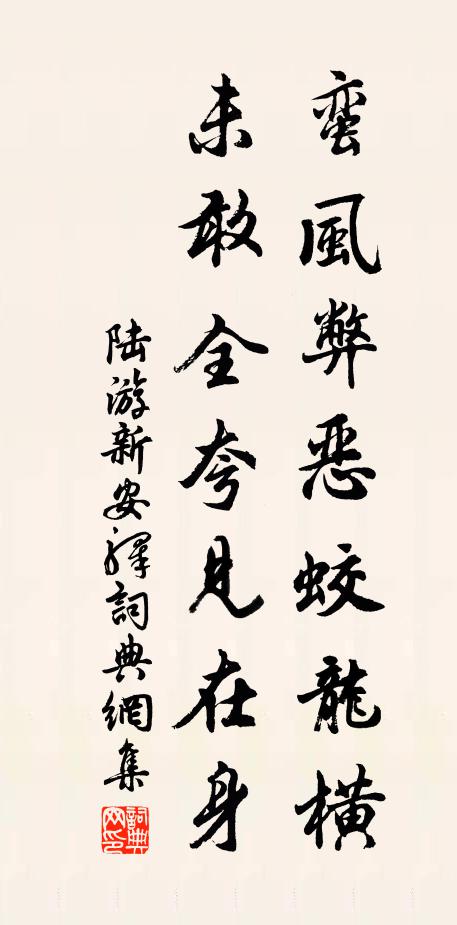 蛮風弊惡蛟龍橫
未敢全夸見在身
陆游新安驛詞典網集
詞典
网印